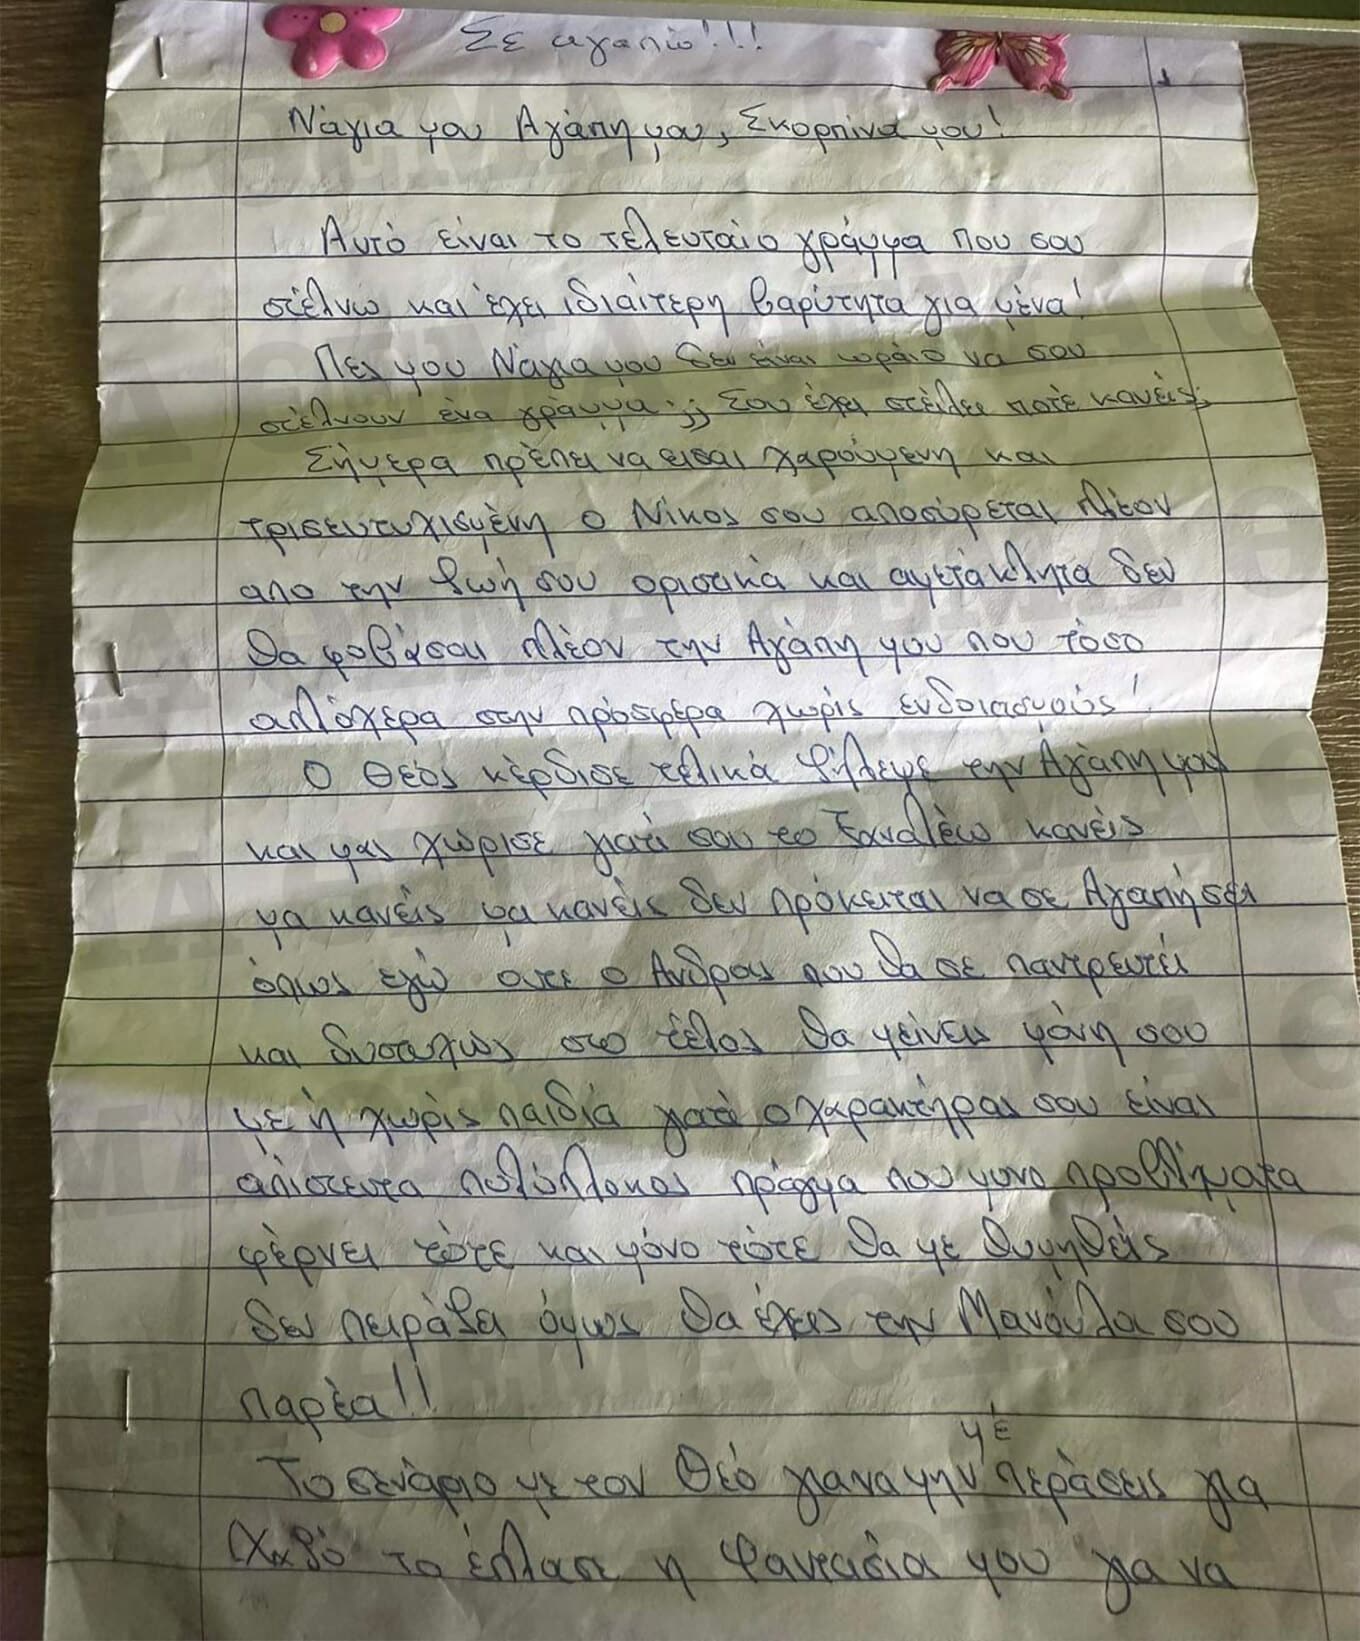 Σε αγαπώ!!!
Νάγια μου Αγάπη μου, Σκορπίνα μου!
Αυτό είναι το τελευταίο γράμμα που σου
στέλνω και έχει ιδιαίτερη βαρύτητα για μένα!
Πες μου Νάγια μου δεν είναι ωραίο να σου
στέλνουν ένα γράμμα;;; Σου έχει στείλει ποτέ κανείς;
Σήμερα πρέπει να εισαι χαρούμενη και
τρισευτυχισμένη ο Νίκος σου αποσύρεται πλέον
απο την ζωή σου οριστικά και αμετάκλητα δεν
θα φοβάσαι πλέον την Αγάπη μου που τόσο
απλόχερα σην πρόσφερα χωρίς ενδοιασμούς!
Ο Θεός κέρδισε τελικά ζήλεψε την Αγάπη μου
και μας χώρισε γιατί σου το ξαναλέω κανείς
μα κανείς μα κανείς δεν πρόκειται να σε Αγαπήσει
όπως εγώ ουτε ο Ανδρας που θα σε παντρευτεί
και δυστυχώς στο τέλος θα μείνεις μόνη σου
με ή χωρίς παιδιά γιατί ο χαρακτήρας σου είναι
απίστευτα πολύπλοκος πράγμα που μονο προβλήματα
φέρνει τότε και μόνο τότε θα με θυμηθείς
δεν πειράζει όμως θα έχεις την Μανούλα σου
παρέα!!
Το σενάριο με τον Θεό για να μην με περάσεις για
Χαζό το έπλασε η Φαντασία μου για να